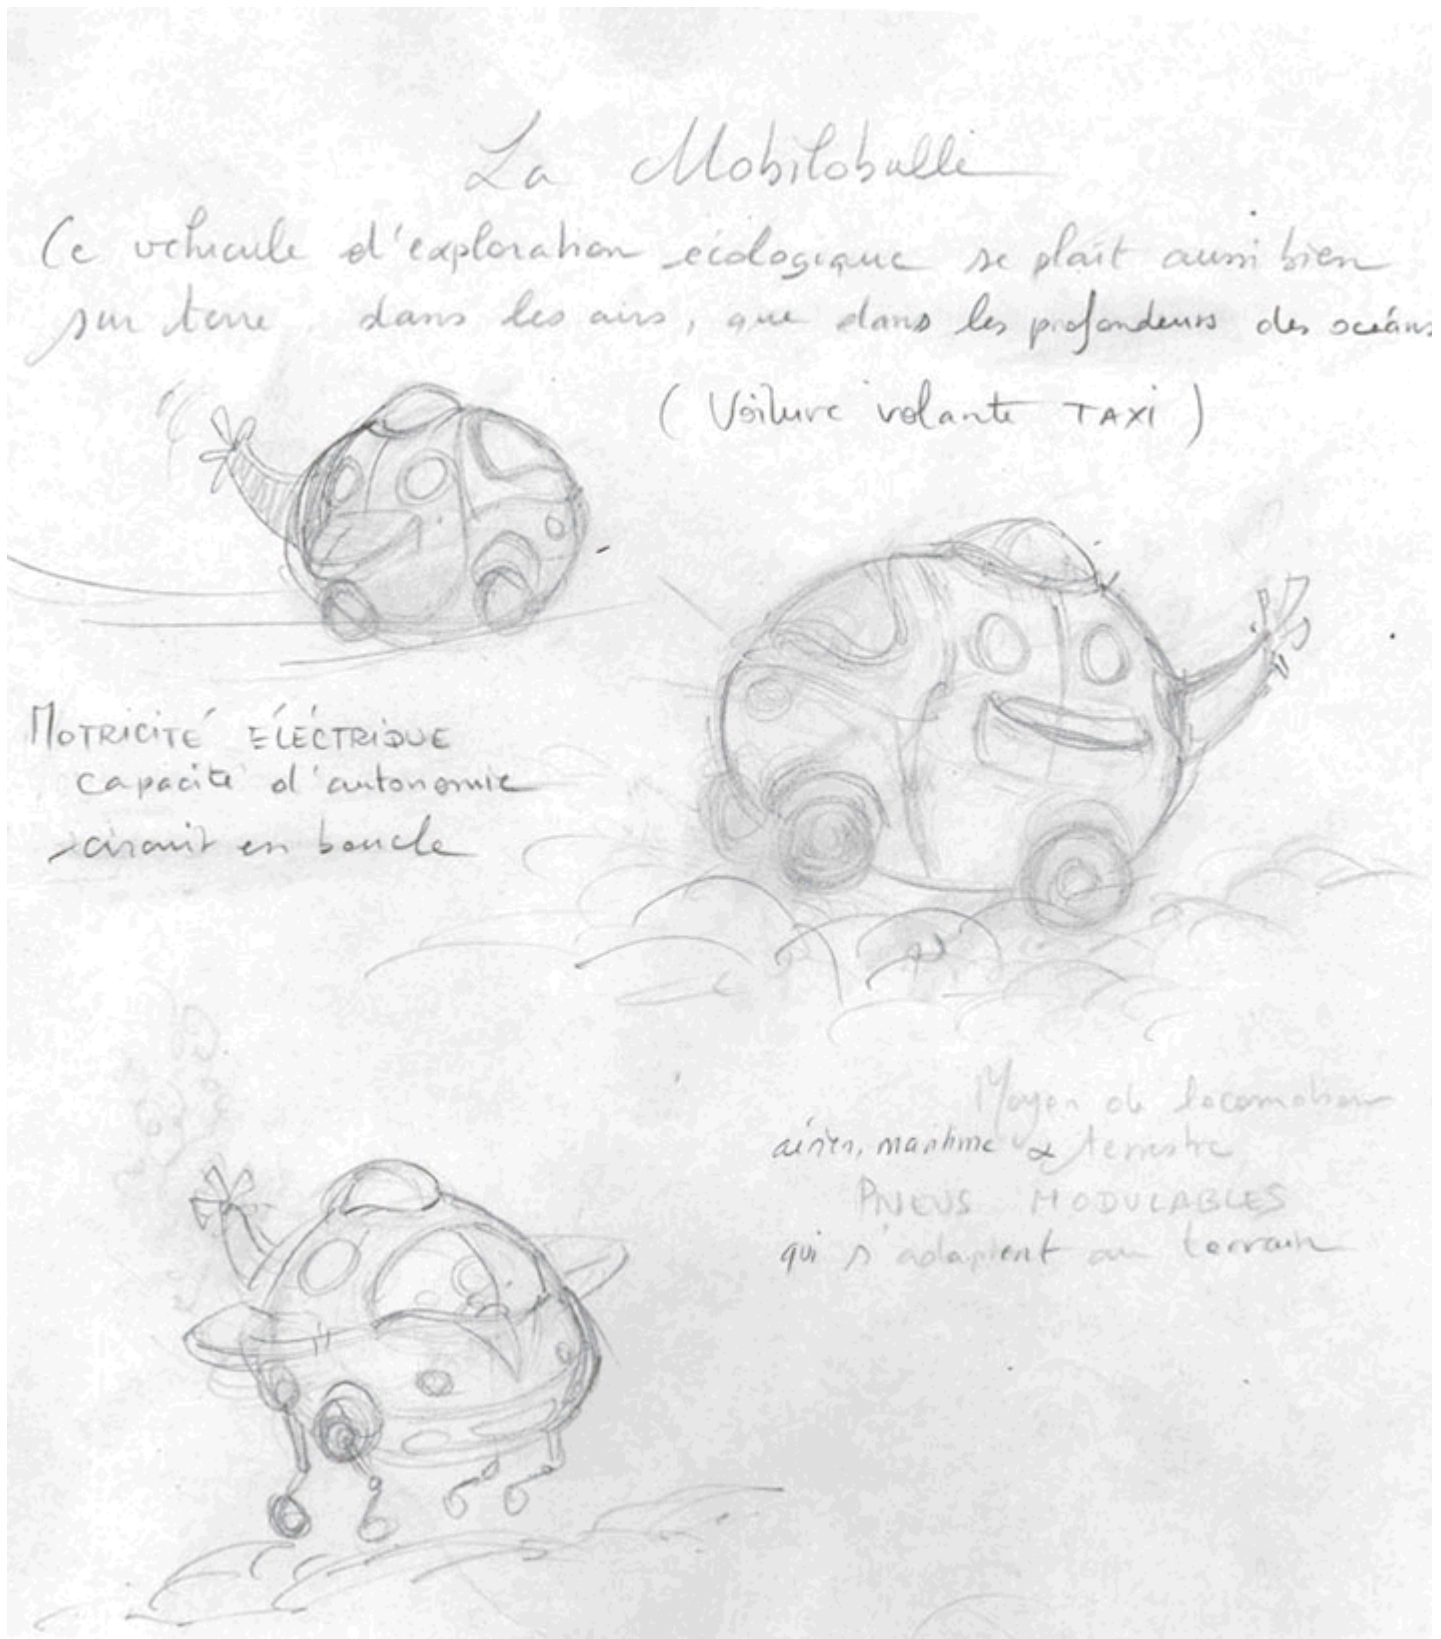 La Mobilobulle
Ce véhicule d'exploration écologique se plaît aussi bien
sur terre dans les airs, que dans les profondeurs des océans
(Voiture volante TAXI)
MOTRICITÉ ÉLÉCTRIQUE
capacité d'autonomie
circuit en boucle
Moyen de locomotion
aérien, maritime & terrestre
PNEUS MODULABLES
qui s'adaptent au terrain